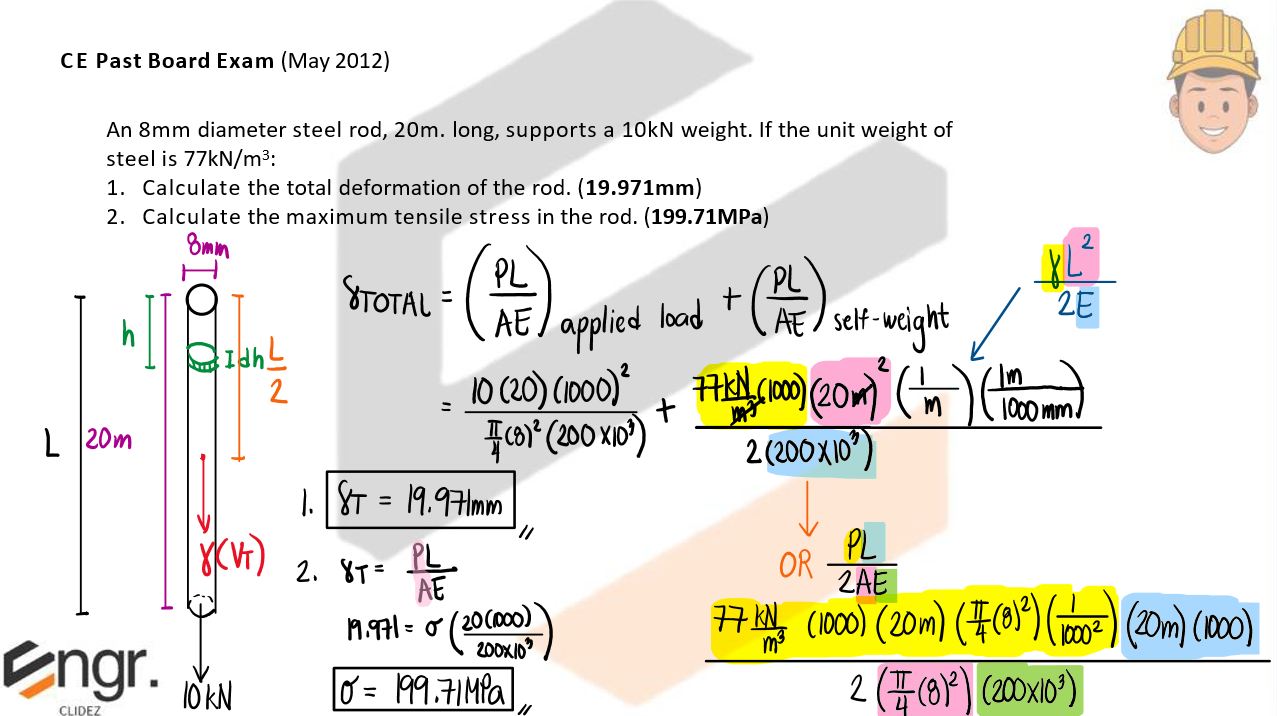 CE Past Board Exam (May 2012)
An 8mm diameter steel rod, 20m. long, supports a 10kN weight. If the unit weight of
steel is 77kN/m³:
1. Calculate the total deformation of the rod. (19.971mm)
2. Calculate the maximum tensile stress in the rod. (199.71MPa)
8mm
h
dh
L/2
L
20m
γ(V_T)
10 kN
δTOTAL = (PL/AE) applied load + (PL/AE) self-weight
γL²/2E
= 10(20)(1000)² / π/4(8)²(200×10³) + 77kN/m³(1000)(20m)²(1/m)(1m/1000mm) / 2(200×10³)
1. δT = 19.971mm
OR PL/2AE
77 kN/m³ (1000)(20m)(π/4(8)²)(1/1000²)(20m)(1000) / 2(π/4(8)²)(200×10³)
2. δT = PL/AE
19.971 = σ(20(1000)/200×10³)
σ = 199.71MPa
Engr.
CLIDEZ